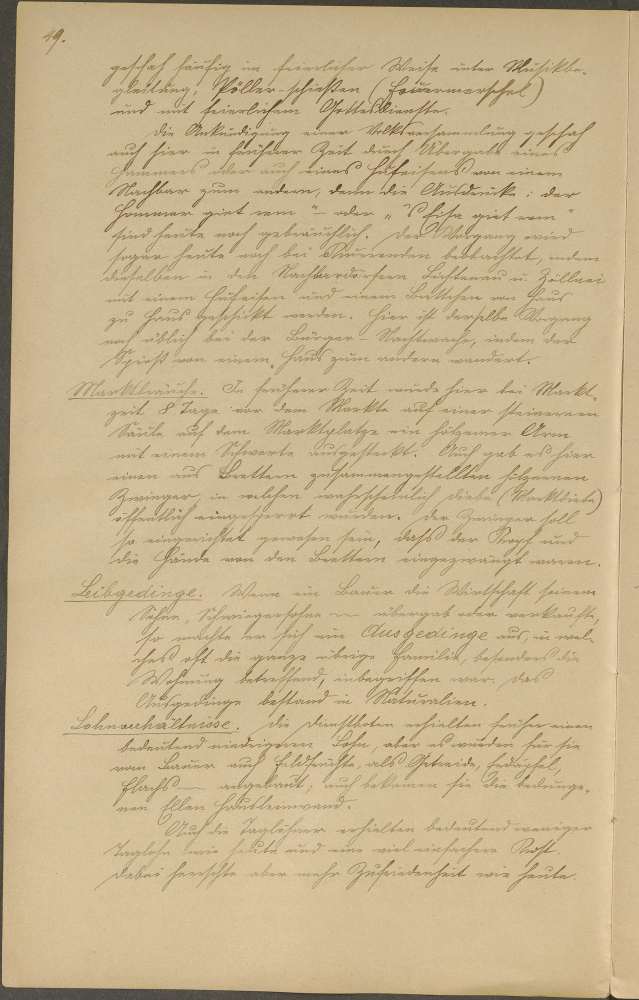 49.
geschah häufig in feierlicher Weise unter Musikbe-
gleitung, Pöller-schießen (Feuermarschal)
und mit feierlichem Gottesdienste.
Die Ankündigung einer Volksversammlung geschah
auch hier in früherer Zeit durch Übergabe eines
Hammers oder auch eines Hufeisens von einem
Nachbar zum andern, denn die Ausdrücke: der
Hammer giet rem" - oder „'s Eisn giet rem"
sind heute noch gebräuchlich. Der Vorgang wird
sogar heute noch bei beobachtet, indem
dieselben in den Nachbardörfern Lichtenau u. Zöllnei
mit einem Hufeisen und einem Brettchen von Haus
zu Haus geschickt werden. Hier ist derselbe Vorgang
noch üblich bei der Bürger-Nachtwache, indem der
Spieß von einem Haus zum andern wandert.
Marktbräuche. In früherer Zeit wurde hier bei Markt-
zeit 8 Tage vor dem Markte auf einer steinernen
Säule auf dem Marktplatze ein hölzerner Arm
mit einem Schwerte ausgesteckt. Auch gab es hier
einen aus Brettern zusammengestellten hölzernen
Zwinger, in welchen wahrscheinlich Diebe (Marktdiebe)
öffentlich eingesperrt wurden. Der Zwinger soll
so eingerichtet gewesen sein, dass der Kopf und
die Hände von den Brettern eingezwängt waren.
Leibgedinge. Wenn ein Bauer die Wirtschaft seinem
Sohne, Schwiegersohne — übergab oder verkaufte,
so machte er sich ein Ausgedinge aus, in wel-
ches oft die ganze übrige Familie, besonders die
Wohnung betreffend, inbegriffen war. Das
Ausgedinge bestand in Naturalien.
Lohnverhältnisse. Die Dienstboten erhielten früher einen
bedeutend niedrigeren Lohn, aber es wurden für sie
vom Bauer auch Feldfrüchte, als Getreide, Erdäpfel,
Flachs — angebaut; auch bekamen sie die bedunge-
nen Ellen Hausleinwand.
Auch die Taglöhner erhielten bedeutend weniger
Taglohn wie heute und eine viel einfachere Kost.
Dabei herrschte aber mehr Zufriedenheit wie heute.